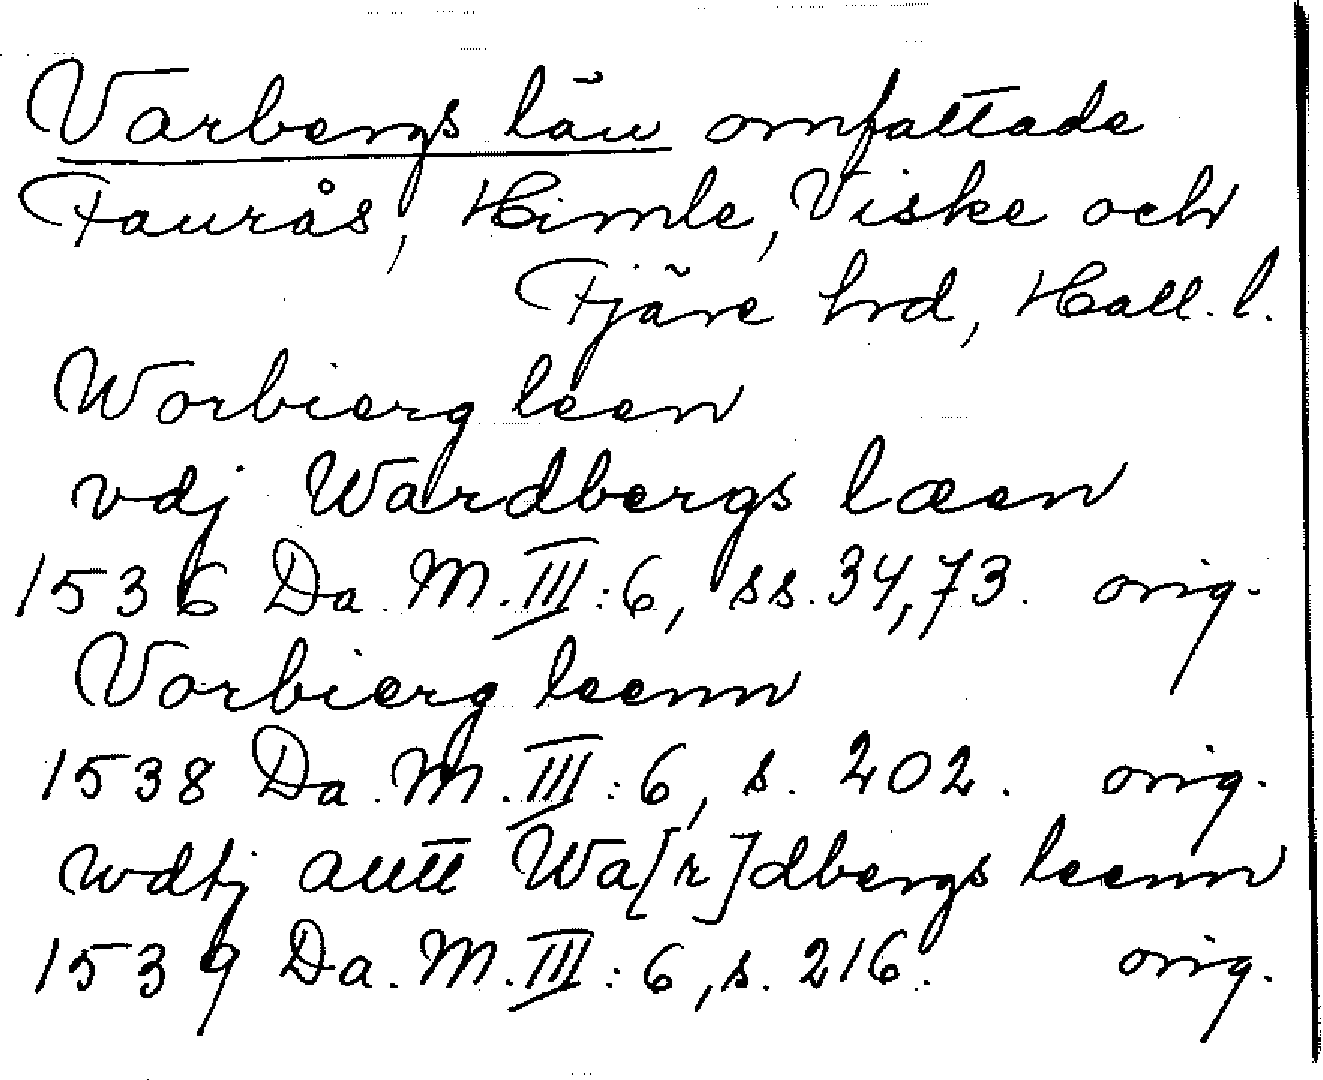 Varbergs län omfattade
Faurås, Himle, Viske och
Fjäre hrd, Hall. l.
Worbierg leen
vdj Wardbergs læen
1536 Da. M. III:6, ss. 34, 73. orig.
Vorbierg leenn
1538 Da. M. III:6, s. 202. orig.
wdtj alltt Wa[r]dbergs leenn
1539 Da. M. III:6, s. 216. orig.